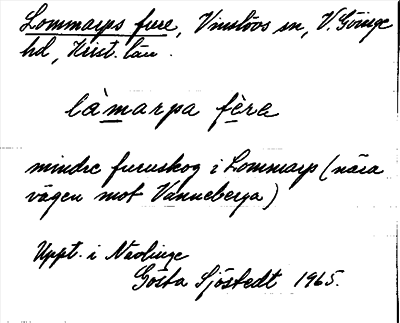 Lommarps fure, Vinslövs sn, V. Göinge
hd, Krist. län.
làmarpa fèra
mindre furuskog i Lommarp (nära
vägen mot Vanneberga)
Uppt. i Nävlinge
Gösta Sjöstedt 1965.